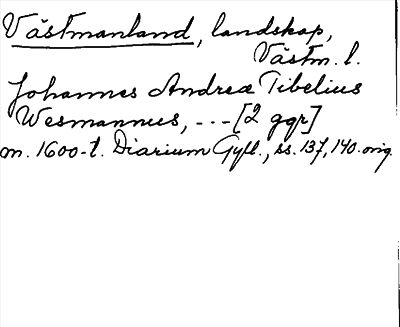 Västmanland, landskap,
Västm. l.
Johannes Andreæ Tibelius
Wesmannus, --- [2 ggr]
m. 1600-t. Diarium Gyll., ss. 137, 140. orig.